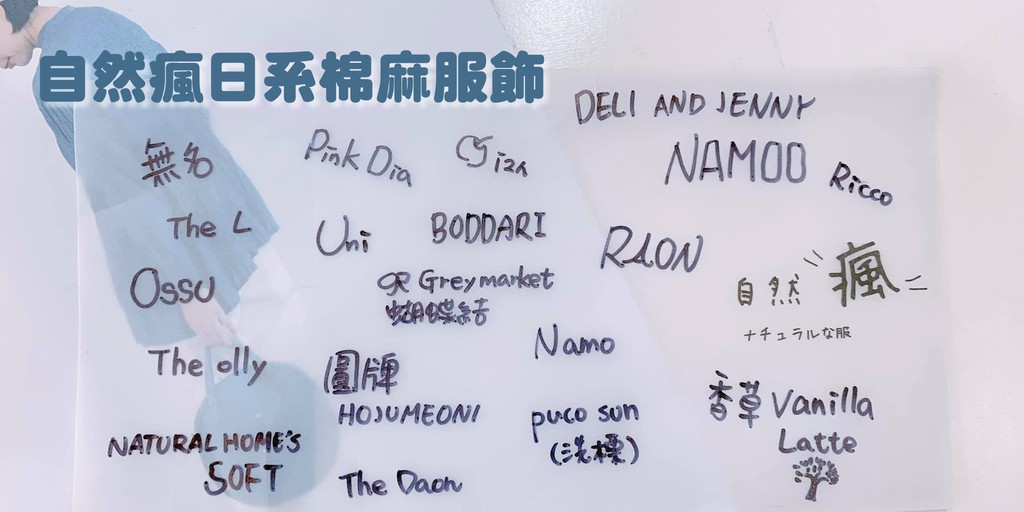 自然瘋日系棉麻服飾
DELI AND JENNY
無名
Pink Dia
NAMOO
Ricco
The L
Uni
BODDARI
RAON
Ossu
GR Greymarket
蝴蝶結
自然瘋
ナチュラルな服
The olly
圖牌
HOJUMEONI
Namo
香草 Vanilla
Latte
NATURAL HOME'S
SOFT
The Daon
puco sun
(洗標)